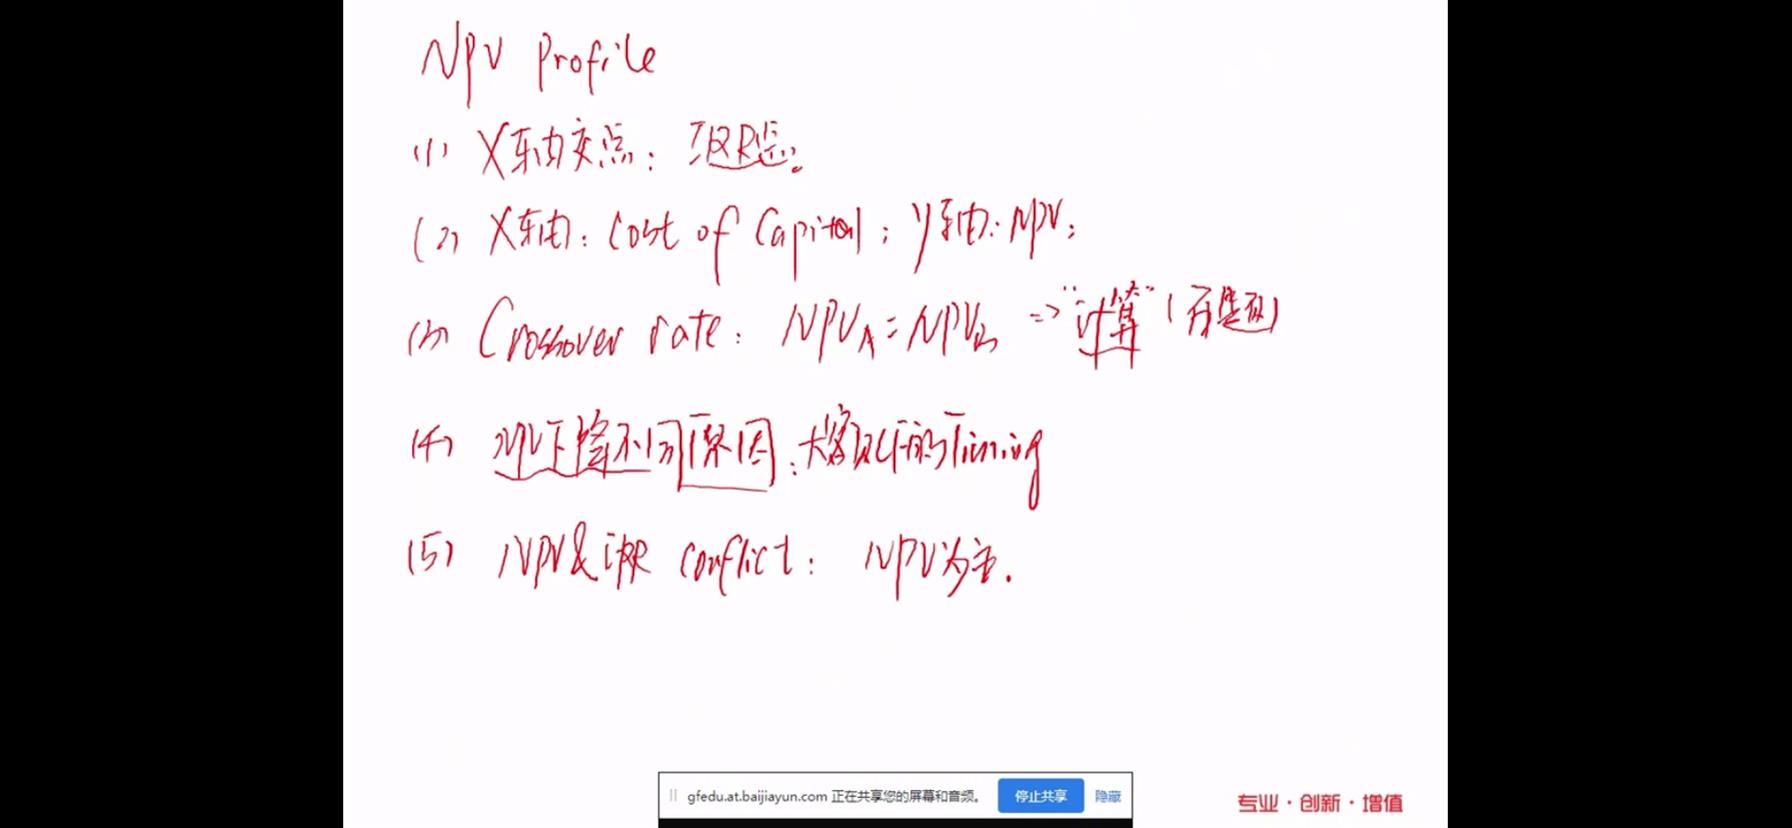 NPV Profile
(1) X轴交点: IRR点。
(2) X轴: Cost of Capital; y轴: NPV;
(3) Crossover rate: NPVA = NPVB => "计算" (有题)
(4) NPV下降不同原因: 大额CF的Timing
(5) NPV & IRR conflict: NPV为主.
gfedu.at.baijiayun.com 正在共享您的屏幕和音频。 停止共享 隐藏
专业·创新·增值